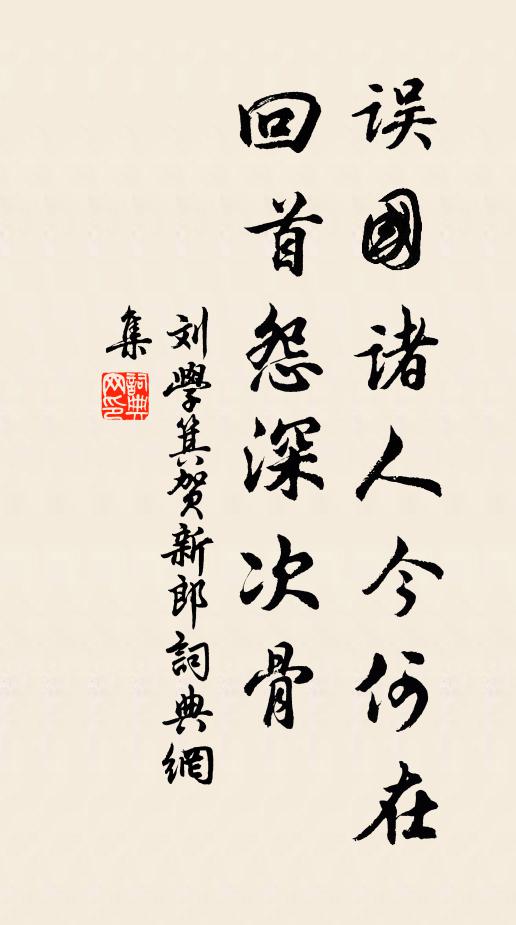 误國诸人今何在
回首怨深次骨
刘學箕贺新郎詞典網
集
詞典
网印